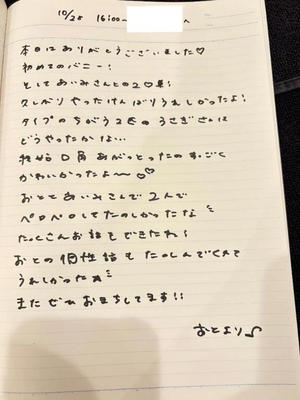 10/25 16:00〜 へ
本日はありがとうございました♡
初めてのバニー!
そしてあいみさんとの2◯車!
久しぶりやったけんばりうれしかったよ!
タイプのちがう2匹のうさぎさんは
どうやったかな…
口角あがっとったのすっごく
かわいかったよ〜♡♡
おととあいみさんで2人で
ペロペロしてたのしかったな
たくさんお話もできたね!
おとの個性話もたのしんでくれて
うれしかったぁ
またぜひおまちしてます!!
おとより♪